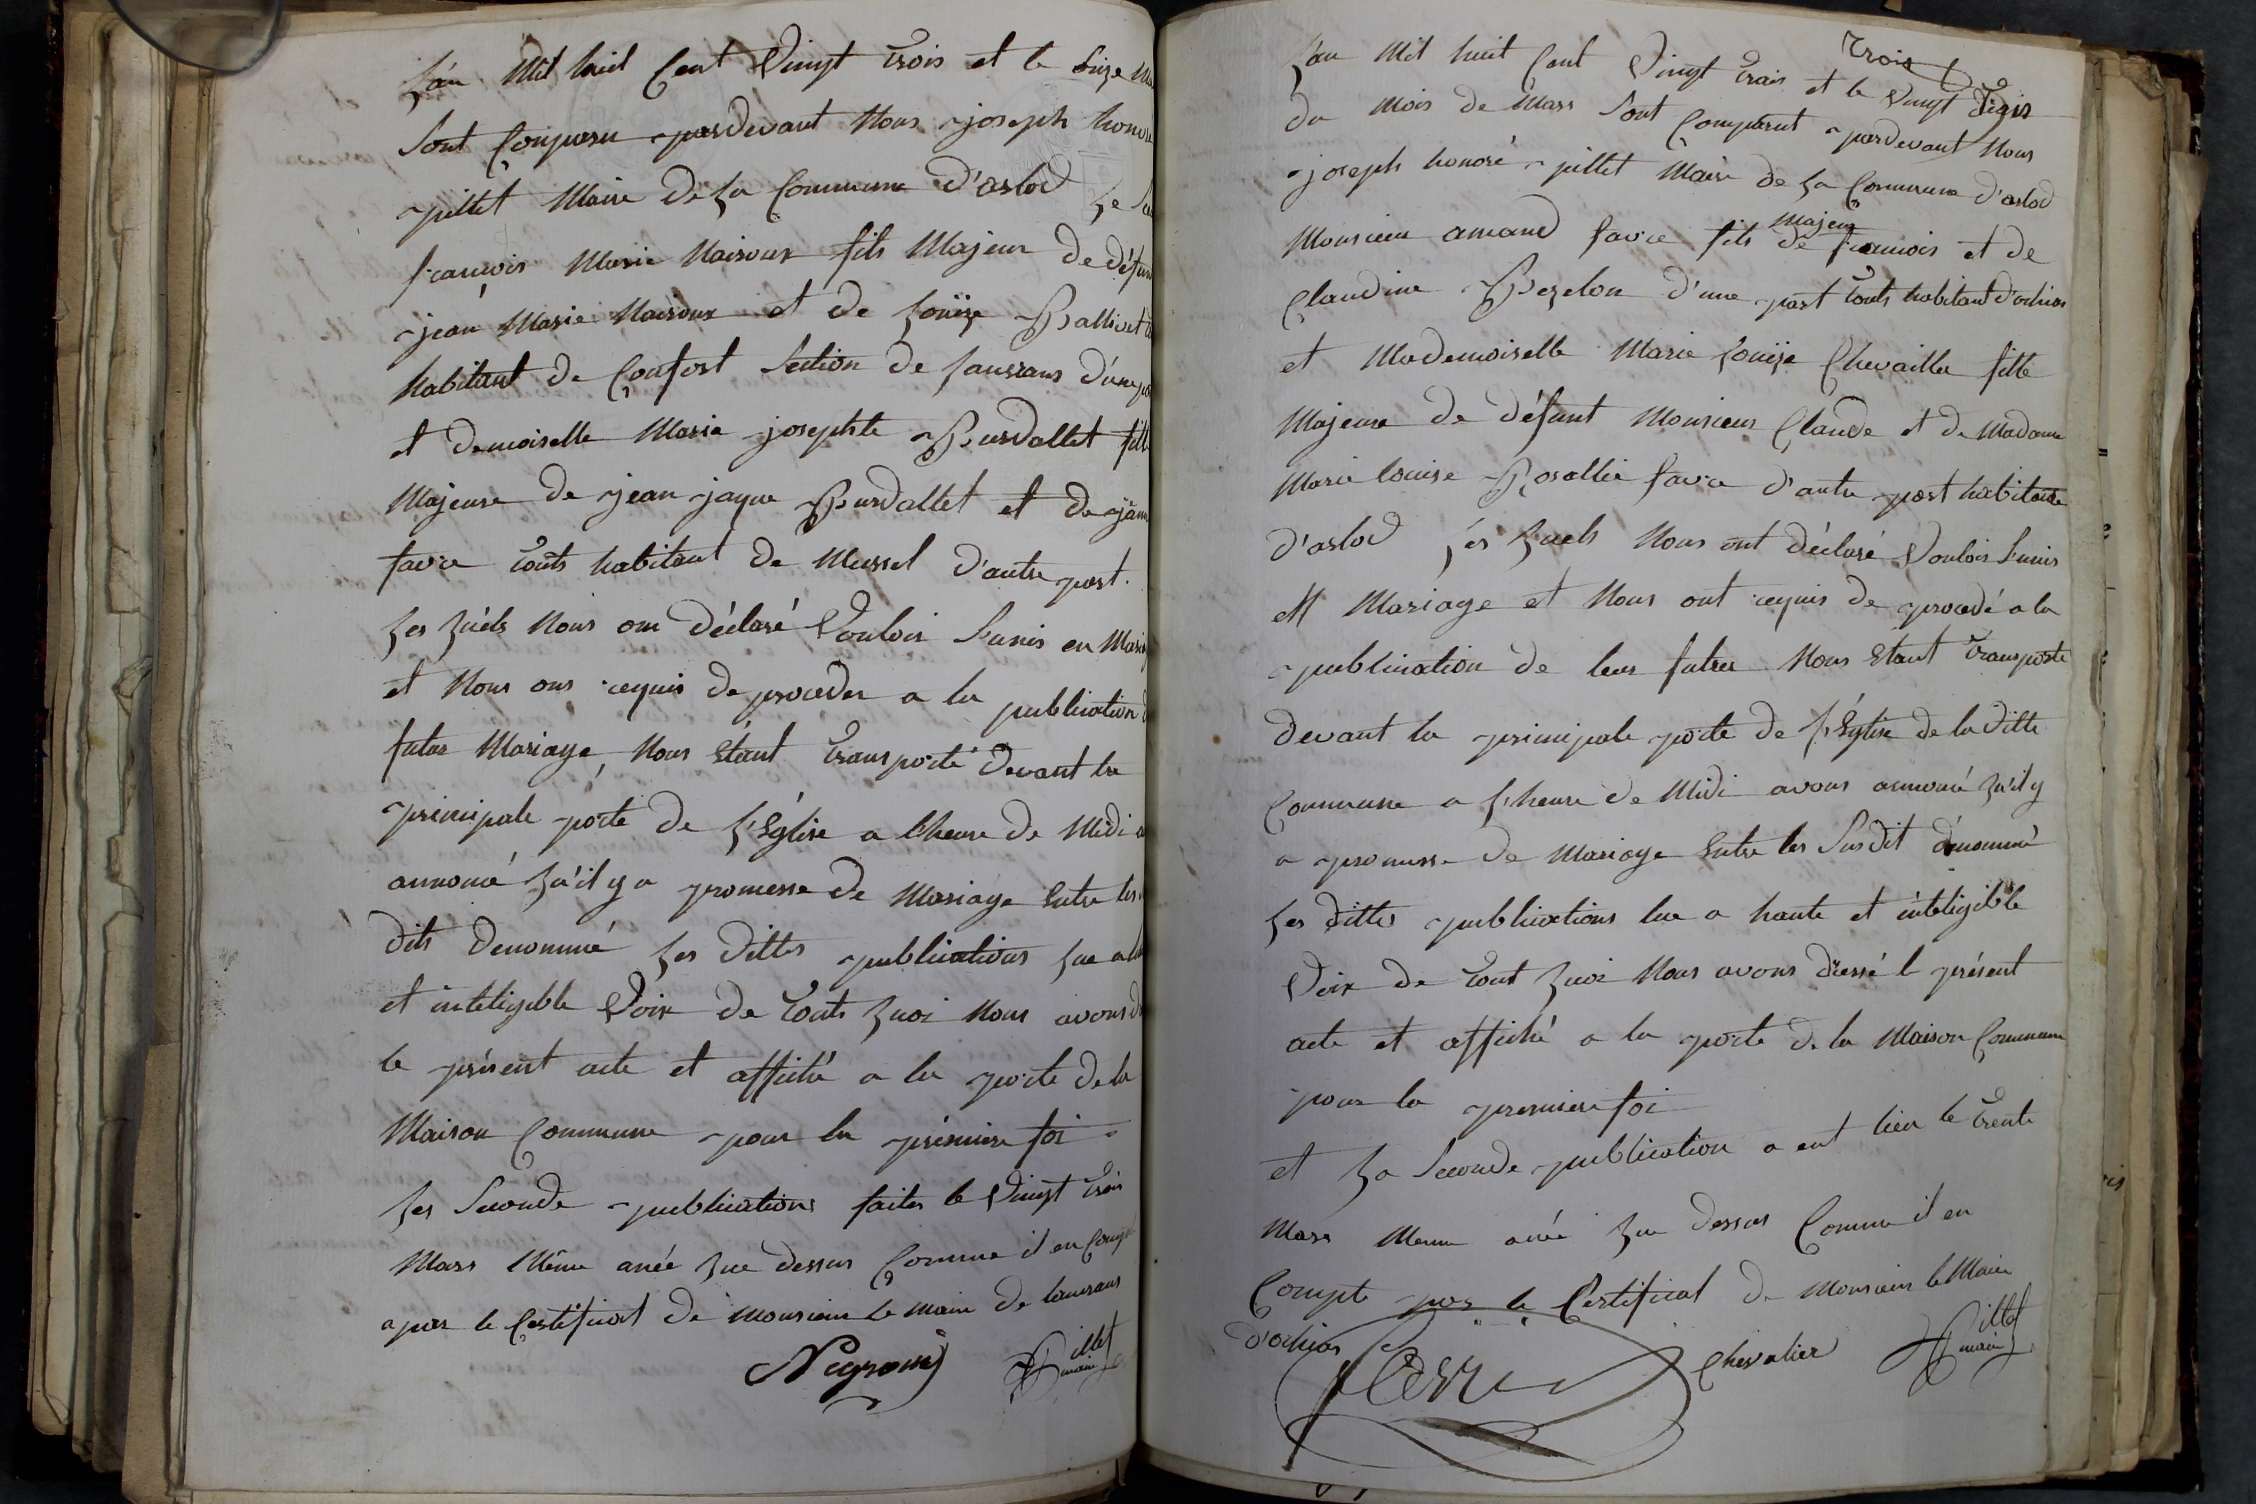 L'an Mil huit Cent Vingt trois et le Seize
Sont Comparu pardevant Nous joseph honoré
pillet Maire de La Commune d'arlod Le
françois Marie Maisoux fils Majeur de défunt
jean Marie Maisoux et de Louïse Ballivet
habitant de Confort Section de Lancrans d'une
et demoiselle Marie josephte Burdallet fille
Majeure de jean jaque Burdallet et de
favre touts habitant de Mussel d'autre part.
Les quels Nous ont déclaré Vouloir Sunir en
et Nous ont requis de proceder a la publication
futur Mariage, Nous Étant transporté devant la
principale porte de L'Église a l'heure de Midi
annoncé qu'il y a promesse de Mariage Entre les
dits denommé Les dittes publications Lue a
et inteligible Voix de touts quoi Nous avons
le présent acte et affiché a la porte de la
Maison Commune pour la première foi
Les Seconde publications faites le Vingt trois
Mars Même anée que dessus Comme il en
apar le Certificat de Monsieur le Maire de lancrans
pillet
maire
L'an Mil huit Cent Vingt trois et le Vingt trois
trois
du Mois de Mars Sont Comparut pardevant Nous
joseph honoré pillet Maire de La Commune d'arlod
Monsieur amand favre fils Majeur de francois et de
Claudine Bezelon d'une part touts habitant d'ochiar
et Mademoiselle Marie Louïse Chevallier fille
Majeure de défunt Monsieur Claude et de Madame
Marie louise Rosallie favre d'autre part habitante
d'arlod Les quels Nous ont déclaré Vouloir Sunir
et Mariage et Nous ont requis de procedé a la
publication de leur futur Nous Étant transporté
devant la principale porte de L'Église de la ditte
Commune a L'heure de Midi avons annoncé qu'il y
a promesse de Mariage Entre les Susdit dénommé
Les dittes publications lue a haute et inteligible
Voix de tout quoi Nous avons dressé le présent
acte et affiché a la porte de la Maison Commune
pour la premiere foi
et La Seconde publication a eut lieu le trente
Mars Meme anée que dessus Comme il en
Compte par le Certificat de Monsieur le Maire
d'ochiar
Chevalier
pillet
maire